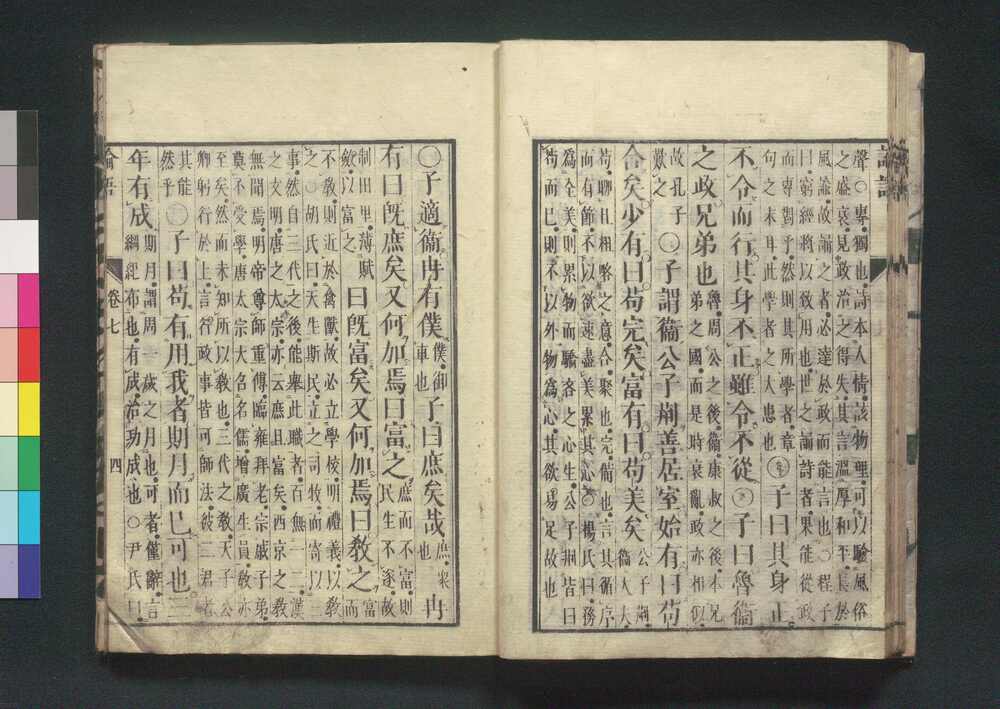 論語
聲○專獨也詩本人情該物理可以驗風俗
之盛衰見政治之得失其言溫厚和平長於
風諭故誦之者必達於政而能言也○程子
曰窮經將以致用也世之誦詩者果能從政
而專對乎然則其所學者章
句之末耳此學者之大患也
○子曰其身正
不令而行其身不正雖令不從○子曰魯衞
之政兄弟也
魯周公之後衞康叔之後本兄
弟之國而是時衰亂政亦相似
故孔子
歎之
○子謂衞公子荊善居室始有曰苟
合矣少有曰苟完矣富有曰苟美矣
公子荊
衞大夫
苟聊且粗略之意合聚也完備也言其循序
而有節不以欲速盡美累其心○楊氏曰務
爲全美則累物而驕吝之心生公子荊皆曰
苟而已則不以外物爲心其欲易足故也
○子適衞冉有僕
僕御
車也
子曰庶矣哉
庶衆
也
冉
有曰旣庶矣又何加焉曰富之
庶而不富則
民生不遂故
制田里薄賦
斂以富之
曰旣富矣又何加焉曰敎之
富
而
不敎則近於禽獸故必立學校明禮義以敎
之○胡氏曰天生斯民立之司牧而寄以三
事然自三代之後能舉此職者百無一二漢
之文明唐之太宗亦云庶且富矣西京之敎
無聞焉明帝尊師重傅臨雍拜老宗戚子弟
莫不受學唐太宗大召名儒增廣生員敎亦
至矣然而未知所以敎也三代之敎天子公
卿躬行於上言行政事皆可師法彼二君者
其能
然乎
○子曰苟有用我者期月而已可也三
年有成
期月謂周一歲之月也可者僅辭言
綱紀布也有成治功成也○尹氏曰
論語
卷七
四